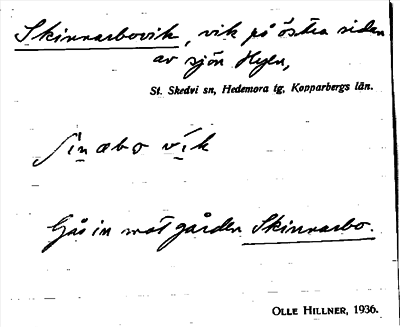 Skinnarbovik, vik på östra sidan
av sjön Hyen,
St. Skedvi sn, Hedemora tg, Kopparbergs län.
vik
Gås in mot gården Skinnarbo.
OLLE HILLNER, 1936.